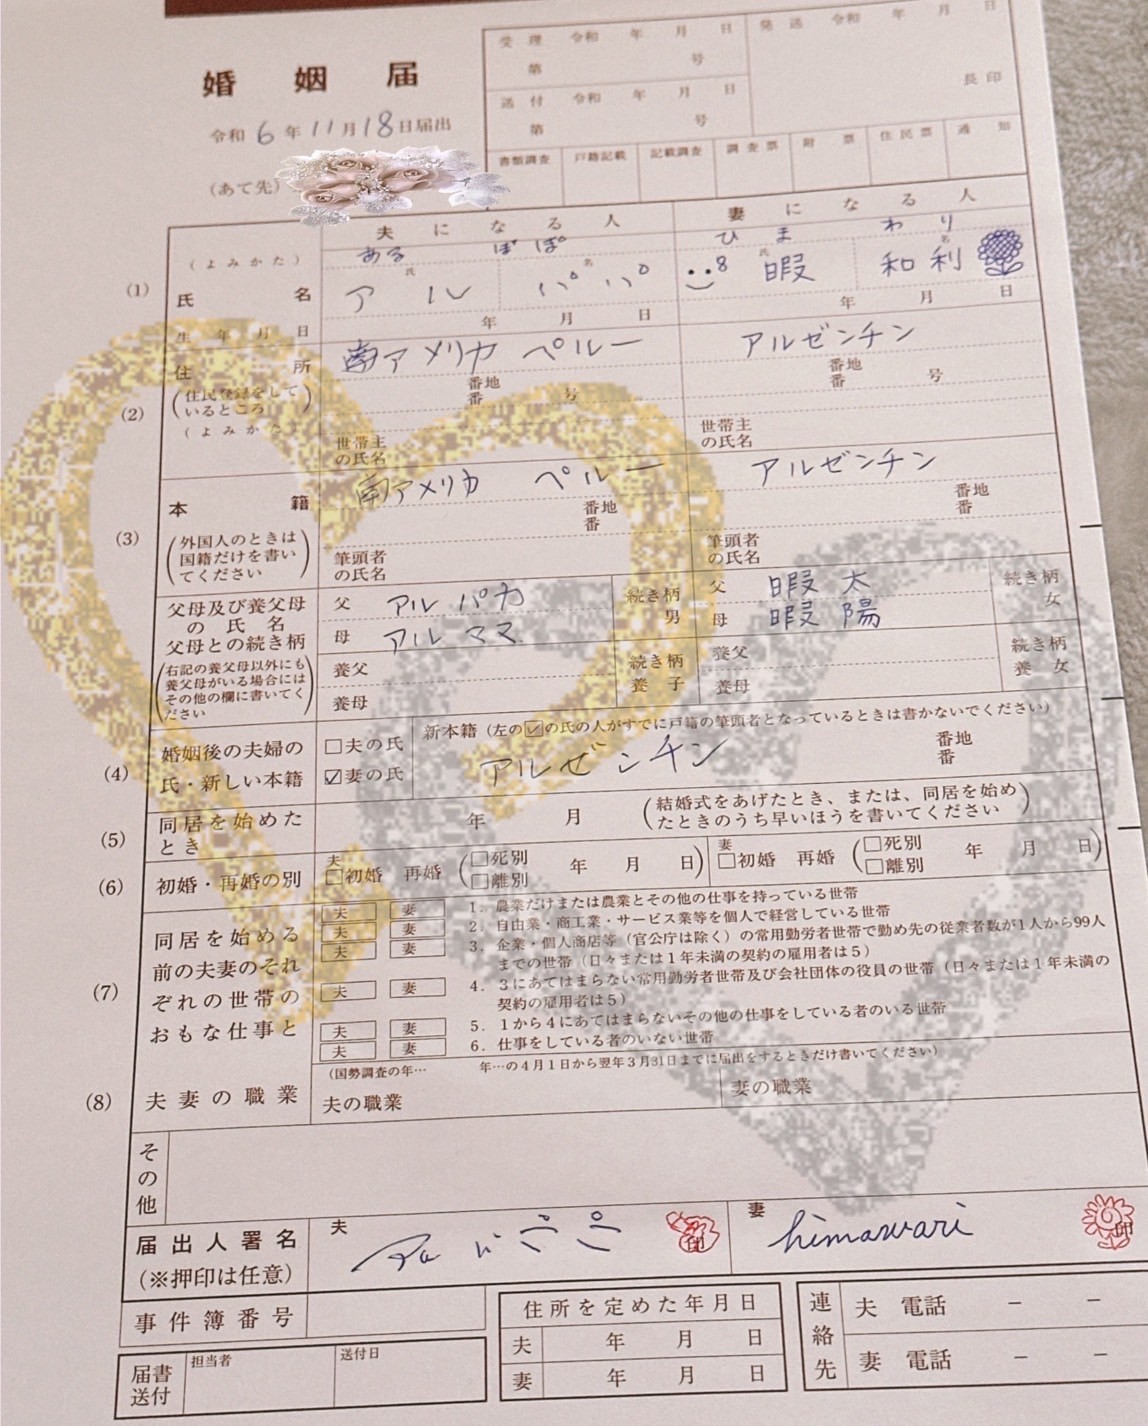 婚姻届
令和6年11月18日届出
(あて先)
受理 令和 年 月 日
第 号
送付 令和 年 月 日
第 号
発送 令和 年 月 日
長印
書類調査 戸籍記載 記載調査 調査票 附票 住民票 通知
夫になる人 妻になる人
(よみかた) ある ぱぱ ひま わり
(1) 氏名 氏 ア ル 名 パパ 氏 暇 名 和利
生年月日 年 月 日 年 月 日
(2) 住所 南アメリカ ペルー アルゼンチン
(住民登録をしているところ)
番地 番 号 番地 番 号
(よみかた)
世帯主の氏名 世帯主の氏名
(3) 本籍 南アメリカ ペルー アルゼンチン
番地 番 番地 番
(外国人のときは国籍だけを書いてください)
筆頭者の氏名 筆頭者の氏名
父母及び養父母の氏名
父母との続き柄
父 アル パカ 続き柄 男 父 暇 太 続き柄 女
母 アル ママ 母 暇 陽
(右記の養父母以外にも養父母がいる場合にはその他の欄に書いてください)
養父 続き柄 養子 養父 続き柄 養女
養母 養母
(4) 婚姻後の夫婦の氏・新しい本籍
□夫の氏
☑妻の氏
新本籍(左の☑の氏の人がすでに戸籍の筆頭者となっているときは書かないでください)
アルゼンチン 番地 番
(5) 同居を始めたとき 年 月 (結婚式をあげたとき、または、同居を始めたときのうち早いほうを書いてください)
(6) 初婚・再婚の別 夫 □初婚 再婚 (□死別 □離別 年 月 日) 妻 □初婚 再婚 (□死別 □離別 年 月 日)
(7) 同居を始める前の夫妻のそれぞれの世帯のおもな仕事と
夫 妻 1. 農業だけまたは農業とその他の仕事を持っている世帯
夫 妻 2. 自由業・商工業・サービス業等を個人で経営している世帯
夫 妻 3. 企業・個人商店等(官公庁は除く)の常用勤労者世帯で勤め先の従業者数が1人から99人までの世帯(日々または1年未満の契約の雇用者は5)
夫 妻 4. 3にあてはまらない常用勤労者世帯及び会社団体の役員の世帯(日々または1年未満の契約の雇用者は5)
夫 妻 5. 1から4にあてはまらないその他の仕事をしている者のいる世帯
夫 妻 6. 仕事をしている者のいない世帯
(8) 夫妻の職業 (国勢調査の年… 年…の4月1日から翌年3月31日までに届出をするときだけ書いてください)
夫の職業 妻の職業
その他
届出人署名
(※押印は任意)
夫 印 妻 himawari 印
事件簿番号
住所を定めた年月日
夫 年 月 日
妻 年 月 日
連絡先
夫 電話 － －
妻 電話 － －
届書送付 担当者 送付日